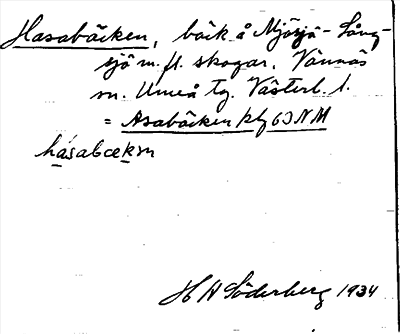 Hasabäcken, bäck å Mjösjö-Lång-
sjö m. fl. skogar. Vännäs
sn. Umeå tg. Västerb. l.
= Asabäcken kbl 63 NM
hásabækɳ
H A Söderberg 1934